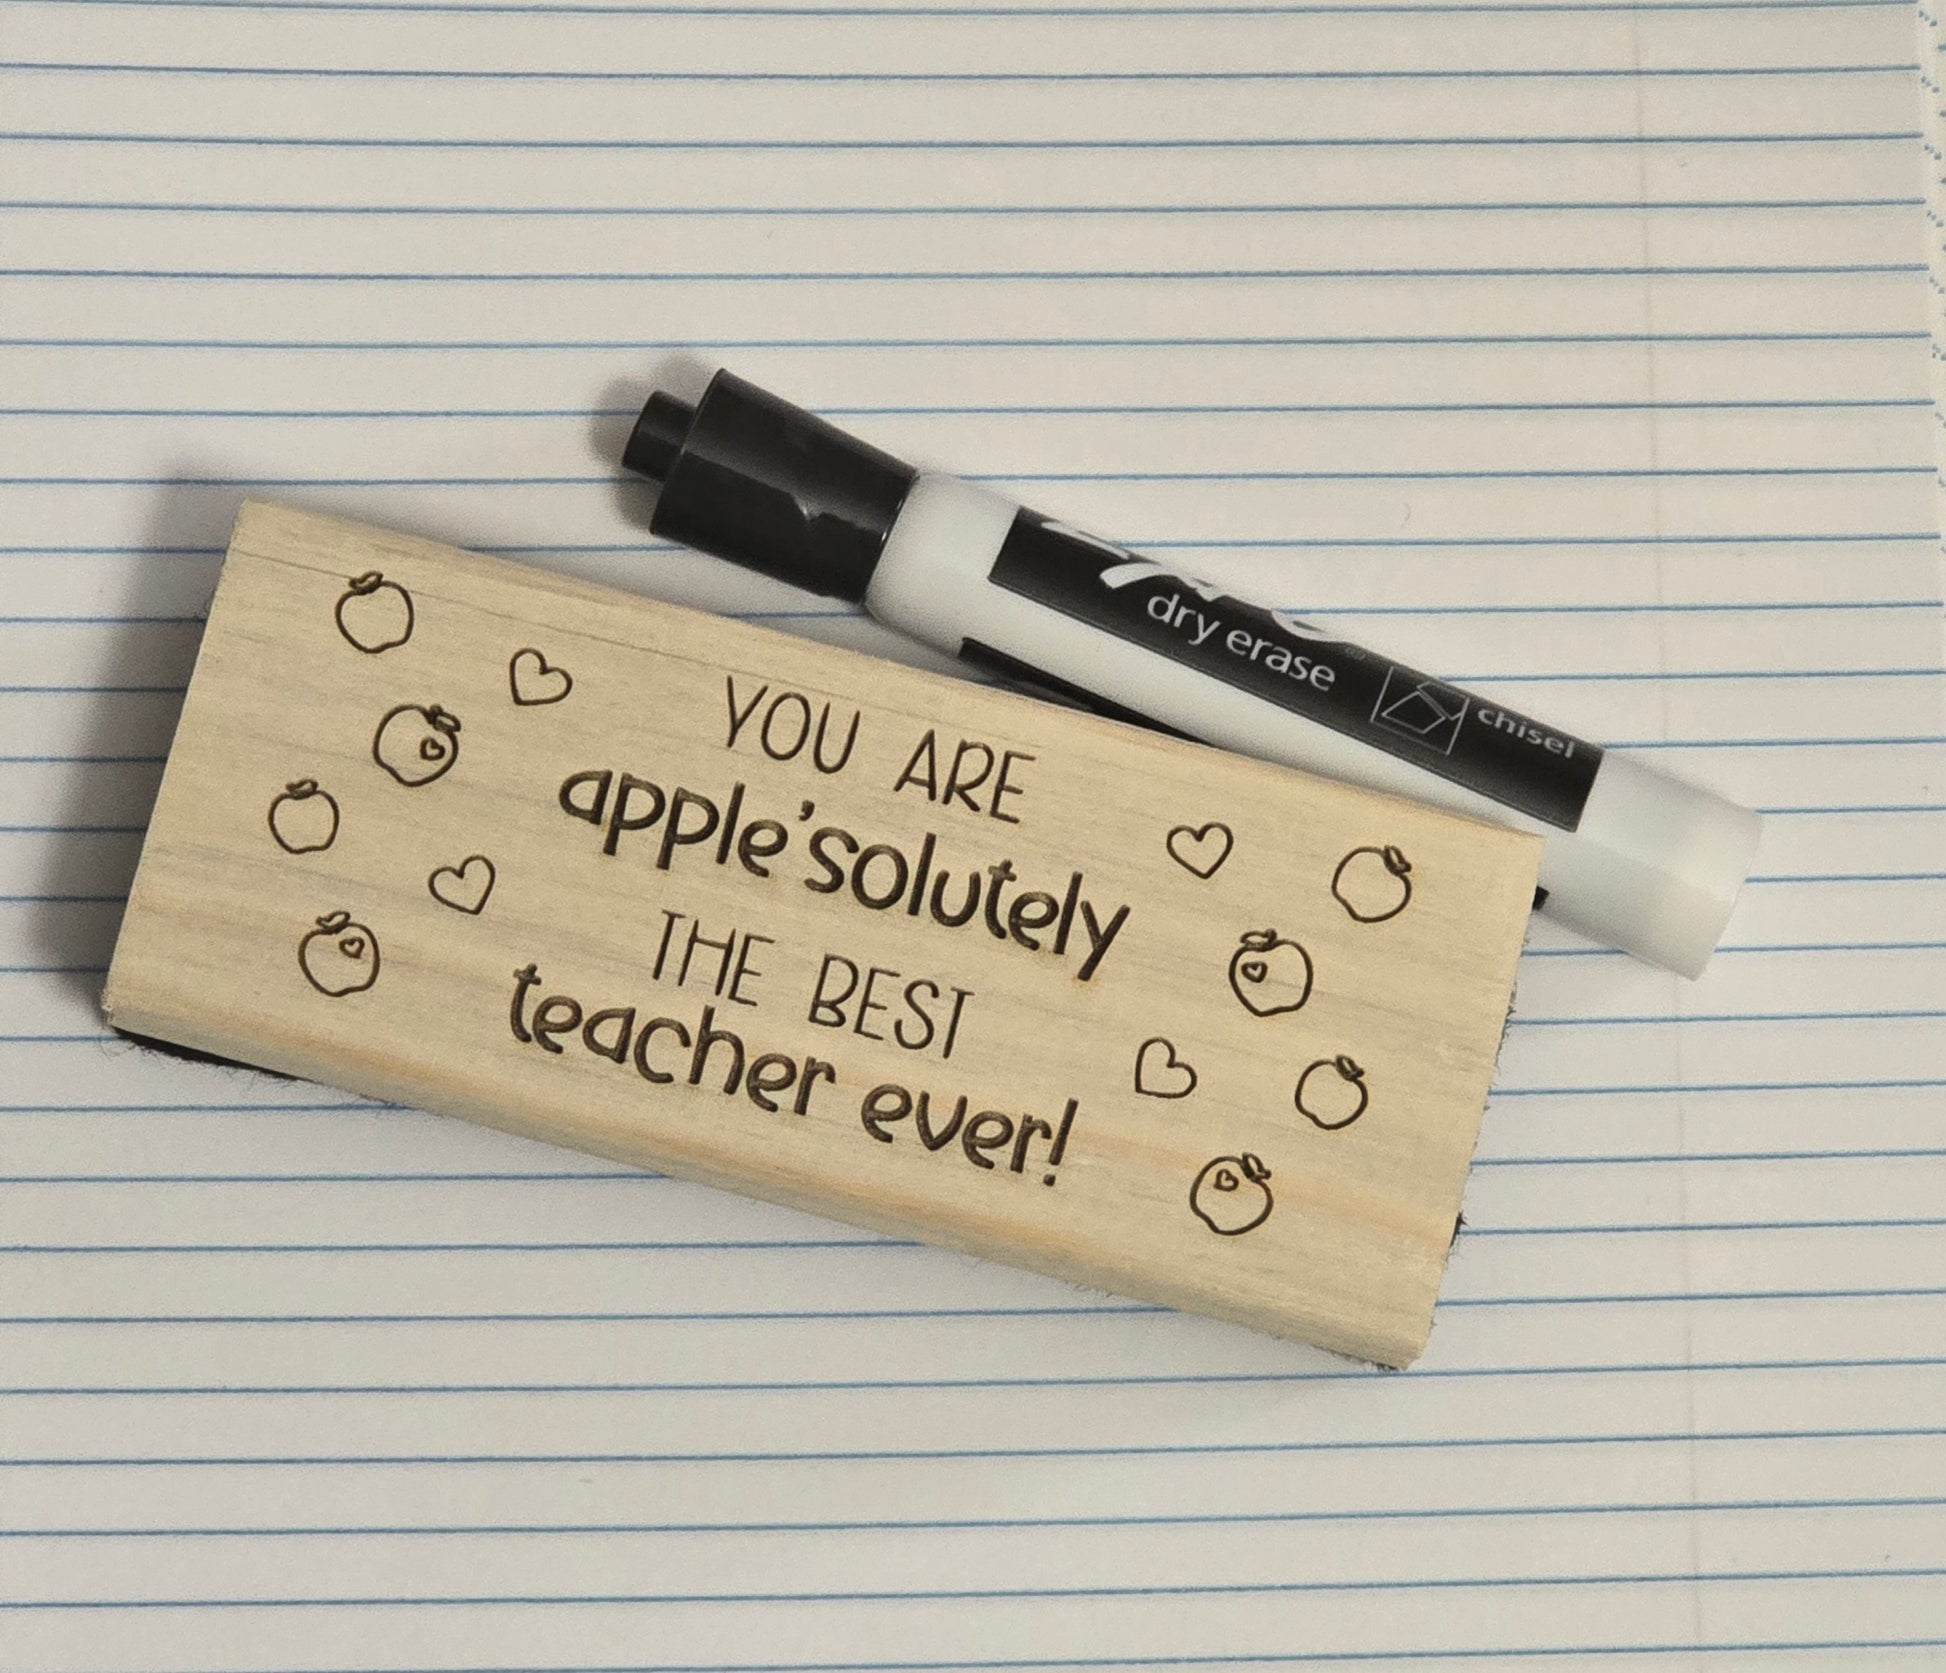 YOU ARE
apple'solutely
THE BEST
teacher ever!
dry erase
chisel